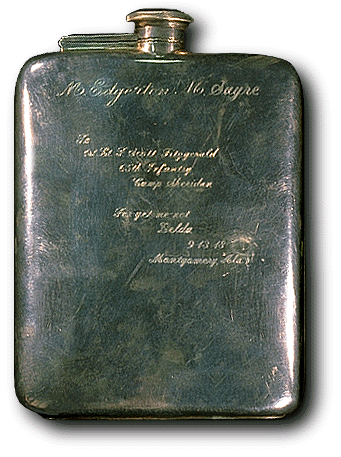 M. Edgerton M. Sayre
To
1st Lt. F. Scott Fitzgerald
65th Infantry
Camp Sheridan
Forget-me-not
Zelda
9-13-18
Montgomery, Ala